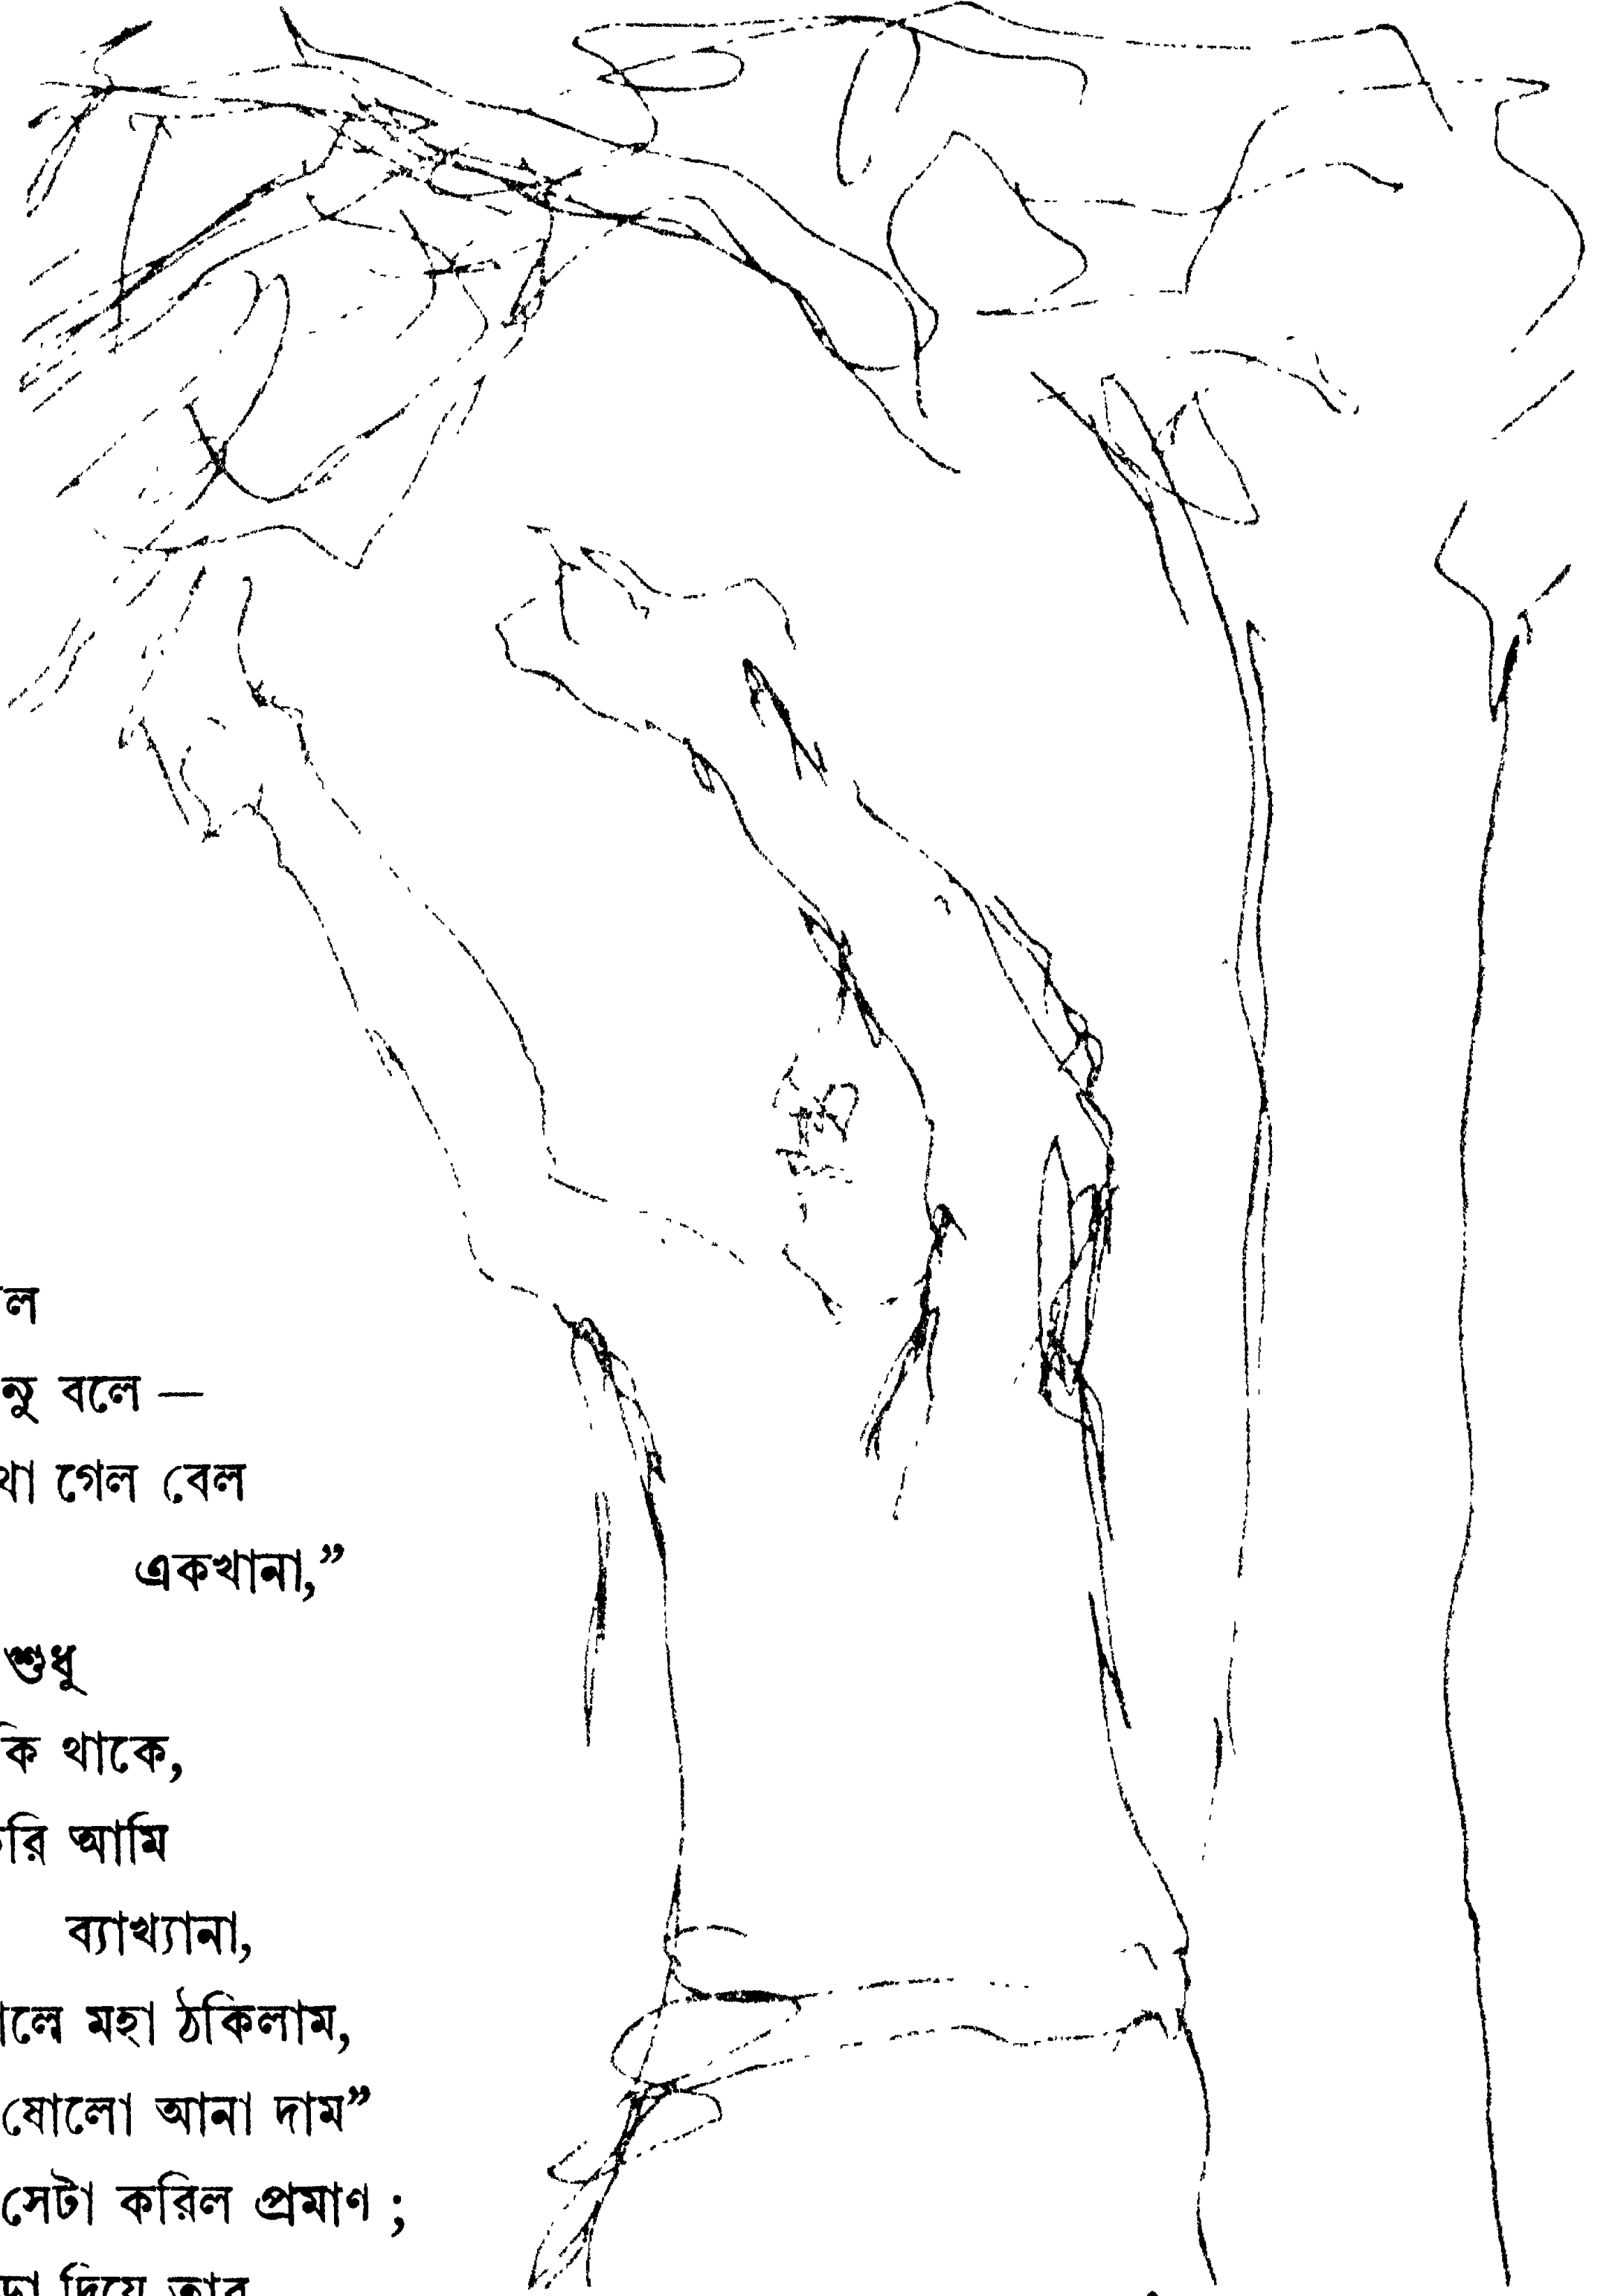 বলে —
গেল বেল
একখানা,”
শুধু
থাকে,
আমি
ব্যাখ্যানা,
মহা ঠকিলাম,
ষোলো আনা দাম”
সেটা করিল প্রমাণ ;
দিয়ে তার